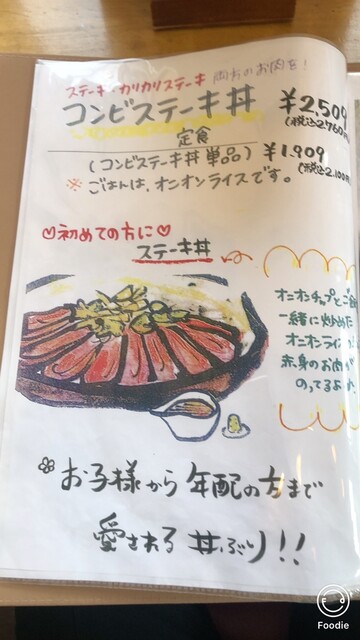 ステーキ・カリカリステーキ 両方のお肉を!
コンビステーキ丼 ¥2,509
定食 (税込2,760円
(コンビステーキ丼単品) ¥1,909
(税込2,100円
※ごはんは、オニオンライスです。
♡初めての方に♡
ステーキ丼
オニオンチップとご飯
一緒に炒めた
オニオンライス
赤身のお肉が
のってるよ
お子様から年配の方まで
愛される丼ぶり!!
Foodie